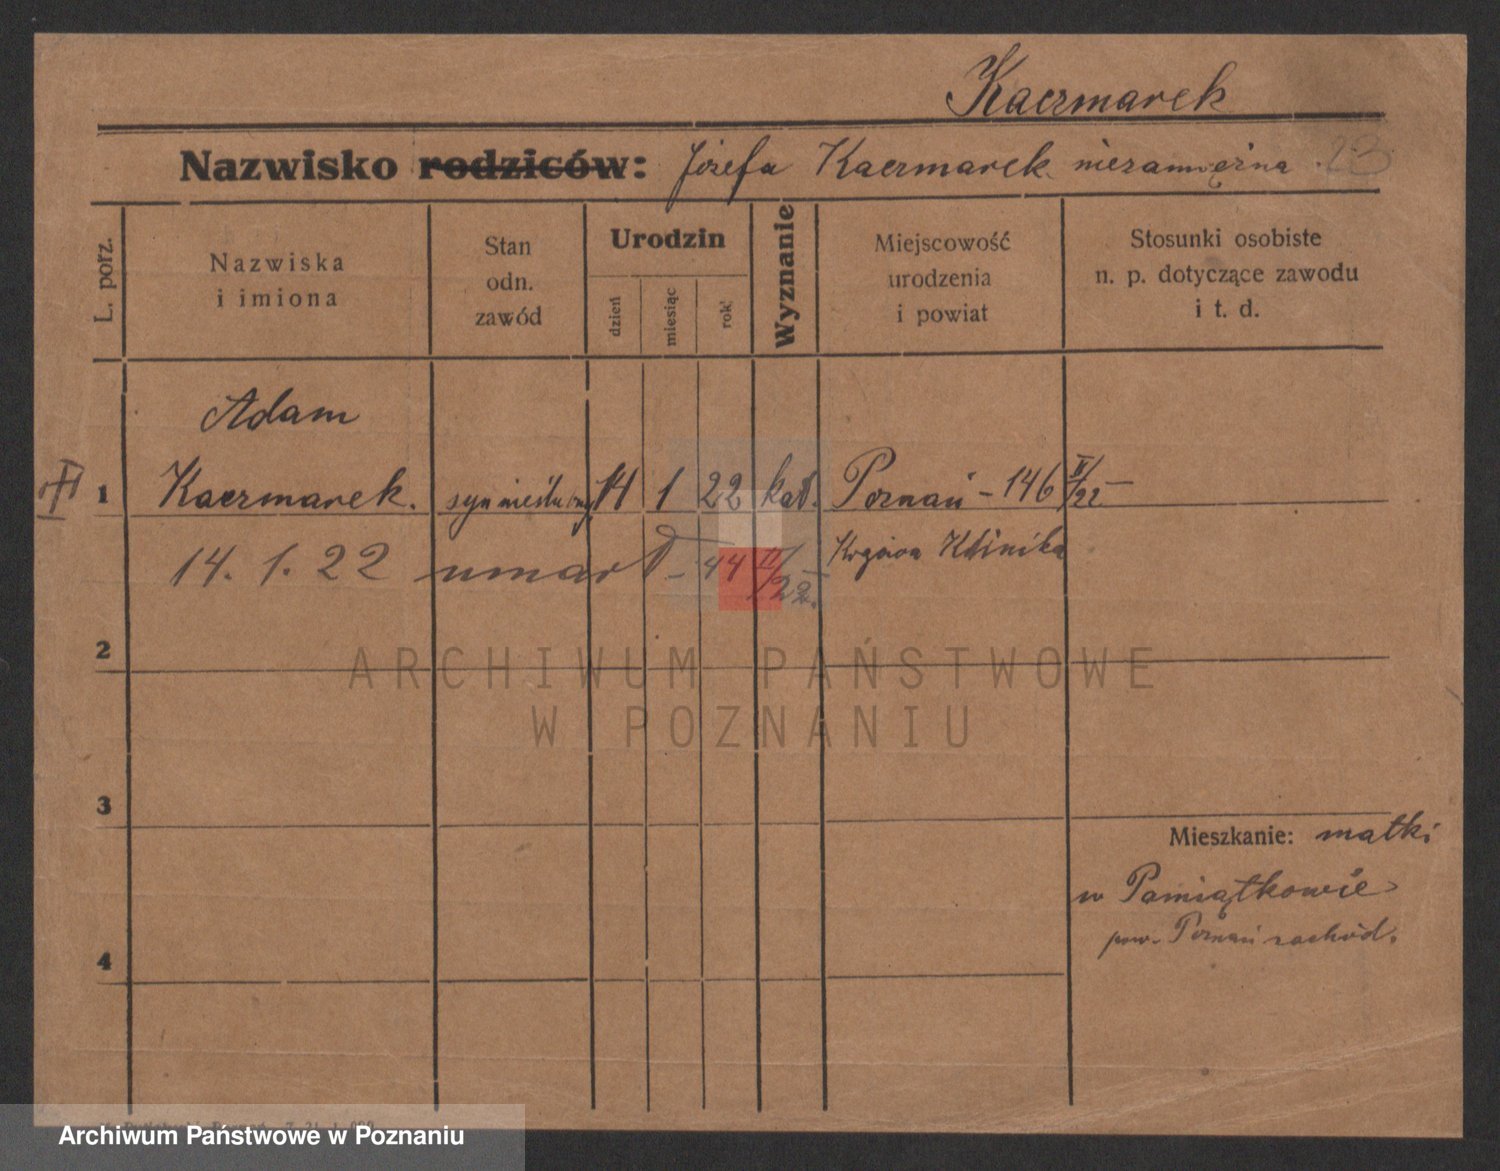 Kaczmarek
Nazwisko rodziców: Józefa Kaczmarek niezamężna 23
L. porz.
Nazwiska
i imiona
Stan
odn.
zawód
Urodzin
dzień
miesiąc
rok
Wyznanie
Miejscowość
urodzenia
i powiat
Stosunki osobiste
n. p. dotyczące zawodu
i t. d.
Adam
1 Kaczmarek. syn nieślubny 14 1 22 kat. Poznań - 146 II/22 -
14. 1. 22 umarł - 44 II/22. Klinika
2
3
Mieszkanie: matki
w Pamiątkowie
pow. Poznań zachód.
4
ARCHIWUM PAŃSTWOWE
W POZNANIU
Archiwum Państwowe w Poznaniu